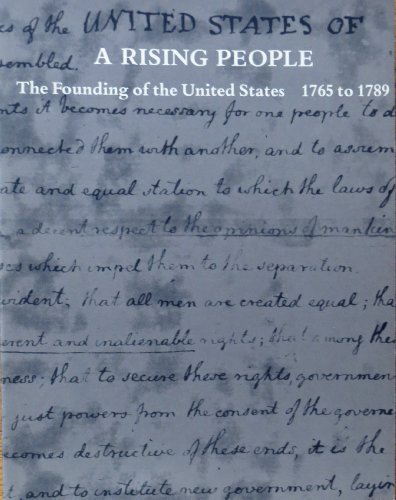 es of the UNITED STATES OF
sembled.
A RISING PEOPLE
The Founding of the United States 1765 to 1789
nts it becomes necessary for one people to d
onnected them with another, and to assum
ate and equal station to which the laws of
a decent respect to the opinions of mankin
ses which impel them to the separation.
vident; that all men are created equal; tha
erent and inalienable rights; that among the
ness; that to secure these rights, governmen
just powers from the consent of the governe
ecomes destructive of these ends, it is the
et, and to institute new government, layin